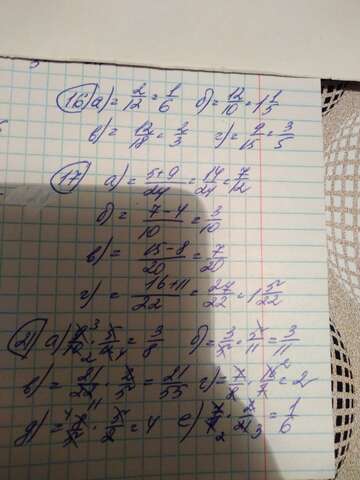 16 а) = 2/12 = 1/6 б) = 12/10 = 1 1/5
в) = 12/18 = 2/3 г) = 9/15 = 3/5
17 а) = 5+9/24 = 14/24 = 7/12
б) = 7-4/10 = 3/10
в) = 15-8/20 = 7/20
г) = 16+11/22 = 27/22 = 1 5/22
21 а) 3/2 = 3/8 б) = 3/5 · 5/11 = 3/11
в) = 21/22 · 2/5 = 21/55 г) = 2
д) = 4 е) = 1/6